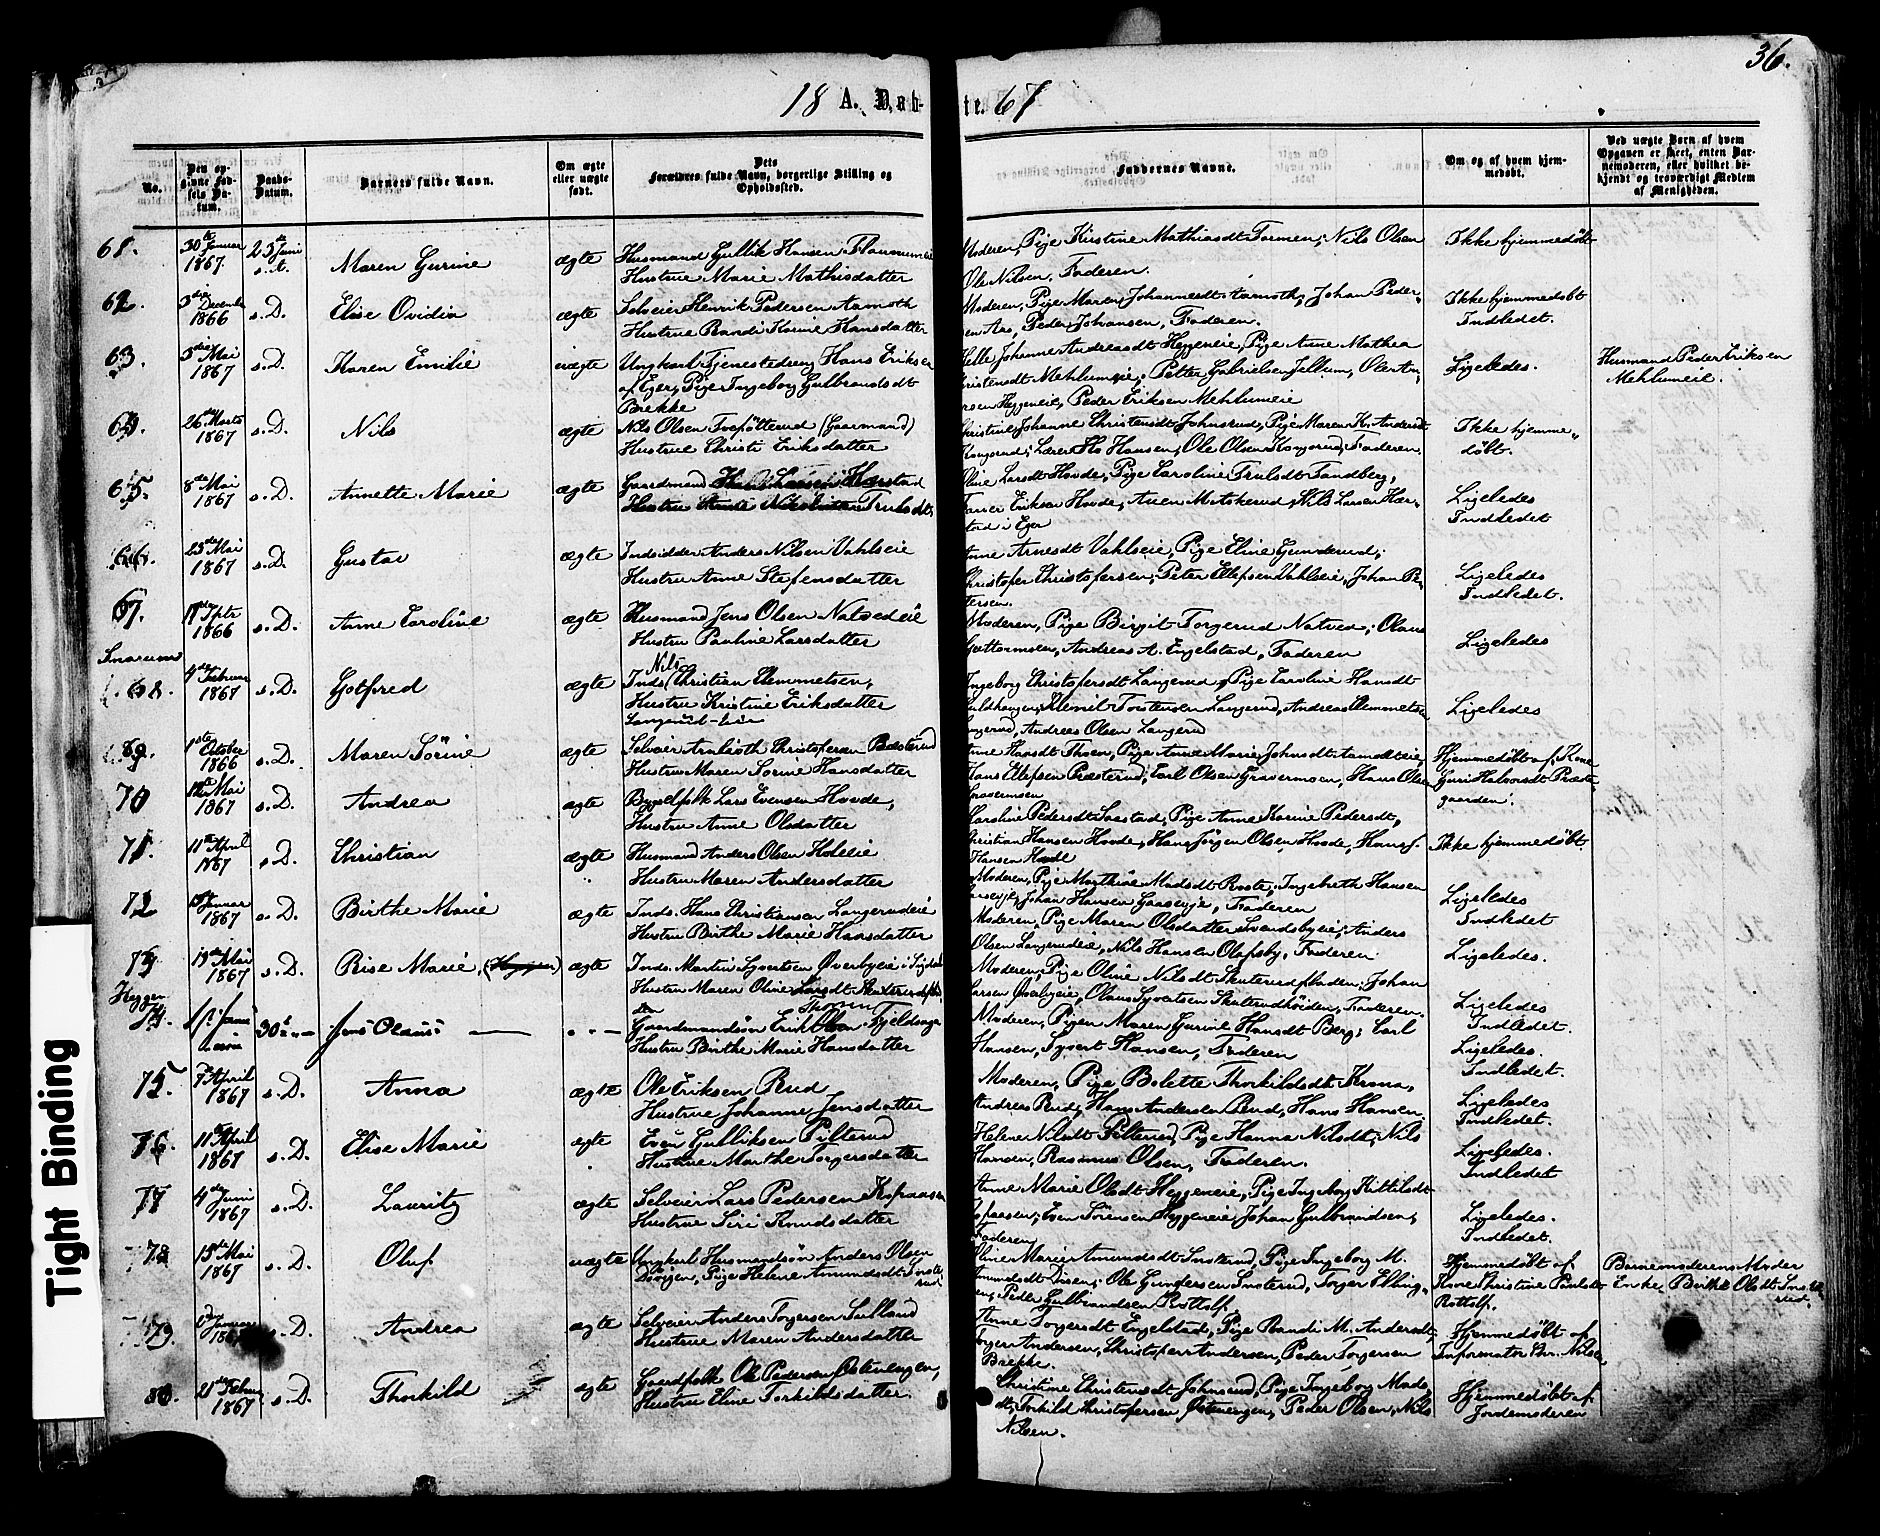 36.
18 A. Døb-
te. 67
No.
Den op-
givne Fød-
sels Da-
tum.
Daabs-
Datum.
Barnets fulde Navn.
Om ægte
eller uægte
født.
Dets
Forældres fulde Navn, borgerlige Stilling og
Opholdssted.
Faddernes Navne.
Om og af hvem hjem-
medøbt.
Ved uægte Børn af hvem
Opgaven er skeet, enten Bar-
nemoderen, eller hvilket be-
kjendt og troværdigt Medlem
af Menigheden.
61. 30te Januar 1867. 23de Juni s.A. Maren Gurine ægte Husmand Gullik Hansen
Hustrue Marie Mathisdatter
Moderen, Pige Kirstine Mathiasdt Formen; Nils Olsen
Ole Nilsen, Faderen.
Ikke hjemmedøbt
62. 3die December 1866 s.D. Elise Ovidia ægte Selveier Henrik Pedersen Aamoth
Hustrue Randi Karine Hansdatter
Moderen, Pige Maren Johannesdt Aamoth, Johan Peder-
sen Aas, Peder Johansen, Faderen.
Ikke hjemmedøbt
Indledet.
63. 3die Mai 1867 s.D. Karen Emilie uægte Ungkarl Tjenestedreng Hans Eriksen
af Eger, Pige Ingeborg Gulbrandsdt
Brekke
Helle Johanne Andreasdt Heggeneie, Pige Anne Mathea
Christensdt Mehlumeie; Petter Gabrielsen Jellum,
Heggeneie, Peder Eriksen Mehlumeie
Ligeledes.
Husmand Peder Eriksen
Mehlumeie.
64. 26de Marts 1867 s.D. Nils ægte Nils Olsen (Gaarmand)
Hustrue Christi Eriksdatter
Christine Johanne Christensdt Johnsrud, Pige Maren K. Andersdt
Kongorud; Lærer Hansen, Ole Olsen Kongorud, Faderen.
Ikke hjemme-
døbt.
65. 8de Mai 1867 s.D. Annette Marie ægte Gaardmand Larsen Hærstad
Hustru Trulsdt
Oline Larsdt Hovde, Pige Caroline Trulsdt Sandberg,
Eriksen Hovde, Nils Larsen Hær-
stad i Eger
Ligeledes
Indledet
66. 23de Mai 1867 s.D. Gustav ægte Indsidder Anders Nilsen Vahlseie
Hustru Anne Stefensdatter
Anne Arnesdt Vahlseie, Pige Eline Gunderud;
Christofer Christofersen; Peter Ellefsen Vahlseie, Johan Pe-
tersen.
Ligeledes
Indledet.
67. 1866 s.D. Anne Caroline ægte Husmand Jens Olsen Natvedeie
Hustru Pauline Larsdatter
Moderen, Pige Birgit Torgerud Natved; Olaus
Guttormsen, Andreas A. Engelstad, Faderen
Ligeledes
Snarum
68. 4de Februar 1867 s.D. Gotfred ægte Inds. Nils Christian Clemmetsen,
Hustru Kristine Eriksdatter
Langerud-Eie
Ingeborg Christofersdt Langerud, Pige Caroline Hansdt
Klemit Torstensen Langerud, Andreas Clemmetsen
Langerud, Andreas Olsen Langerud
Ligeledes
69. 1ste October 1866 s.D. Maren Sørine ægte Selveier Christofersen
Hustru Maren Sørine Hansdatter
Anne Hansdt Thoen, Pige Anne Marie Johnsdt
Hans Ellefsen Præsterud; Carl Olsen Gravermoen, Hans Olsen
Gravermoen
Hjemmedøbt af Kone
Guri Halvorsdt Præste-
gaarden.
70 12te Mai 1867 s.D. Andrea ægte Bygselfolk Lars Evensen Hovde,
Hustru Anne Olsdatter
Caroline Pedersdt Saastad, Pige Anne Karine Pedersdt,
Christian Hansen Hovde, Hans Jørgen Olsen Hovde, Hans
Hansen Hovde
Ikke hjemmedøbt
71. 11te April 1867 s.D. Christian ægte Husmand Anders Olsen Holeeie
Hustru Maren Andersdatter
Moderen, Pige Marthine Madsdt Roste, Ingebreth Hansen
Johan Hansen Gaasevje, Faderen
Ligeledes
Indledet
72 Januar 1867 s.D. Birthe Marie ægte Inds. Hans Christiansen Langerudeie
Hustru Birthe Marie Hansdatter
Moderen, Pige Maren Olsdatter Svendsbyeie; Anders
Olsen Langerudeie, Nils Hansen Olafsby, Faderen
Ligeledes.
73 19de Mai 1867 s.D. Rise Marie, ægte Inds. Martin Syvertsen Øverbyeie i Sigdal
Hustru Maren Oline Larsdt
Moderen, Pige Oline Nilsdt Skuterudpladen; Johan
Larsen Øverbyeie, Olaus Syvertsen Skuterudhøiden, Faderen.
Ligeledes
Indledet.
Heggen
74. 30te Jens Olaus Gaardmandsøn Erik Olsen
Hustru Birthe Marie Hansdatter
Moderen, Pigen Maren Gurine Hansdt Berg; Carl
Hansen, Syvert Hansen, Faderen
Ligeledes.
Indledet.
75. 7de April 1867 s.D. Anna ægte Ole Eriksen Rud
Hustrue Johanne Jensdatter
Moderen, Pige Bolette Thorkildsdt Krona,
Andreas Rud, Hans Andersen Rud, Hans Hansen
Ligeledes
Indledet.
76. 11te April 1867 s.D. Elise Marie ægte Even Gulliksen Pilterud
Hustrue Marthe Torgersdatter
Helene Nilsdt Pilterud, Pige Hanna Nilsdt, Nils
Hansen, Rasmus Olsen, Faderen.
Ligeledes.
Indledet
77 4de Juni 1867 s.D. Lauritz ægte Selveier Lars Pedersen Kopaasen
Hustrue Siri Knudsdatter
Anne Marie Olsdt Heggeneie, Pige Ingeborg Kittilsdt
Kopaasen; Even Sørensen Heggeneie, Johan Gulbrandsen,
Faderen
Ligeledes.
Indledet.
78 15de Mai 1867 s.D. Oluf uægte Ungkarl Husmandsøn Anders Olsen
Pige Helene Amundsdt
Oline Marie Amundsdt Snsterud, Pige Ingeborg M.
Amundsdt Disen; Ole Gundersen Torger Elling-
sen, Peder Gulbrandsen Rottolf.
Hjemmedøbt af
Kone Christine Paulsdt
Rottolf.
Barnemoderens Moder
Enke Birthe Olsdt
79. Januar 1867 s.D. Andrea ægte Selveier Anders Torgersen Sulland
Hustrue Maren Andersdatter
Anne Torgersdt Engelstad, Pige Randi M. Andersdt,
Torger Andersen, Christoffer Andersen, Peder Torgersen
Brekke.
Hjemmedøbt af
Informator Chr. Nilsen
80. 21de Februar 1867 s.D. Thorkild ægte Gaardfolk Ole Pedersen Østenengen,
Hustrue Eline Torkildsdatter
Christine Christensdt Johnsrud, Pige Ingeborg Mads-
dt, Torkild Christofersen Østenengen, Peder Olsen, Nils
Nilsen.
Hjemmedøbt af
Jordemoderen
Tight Binding